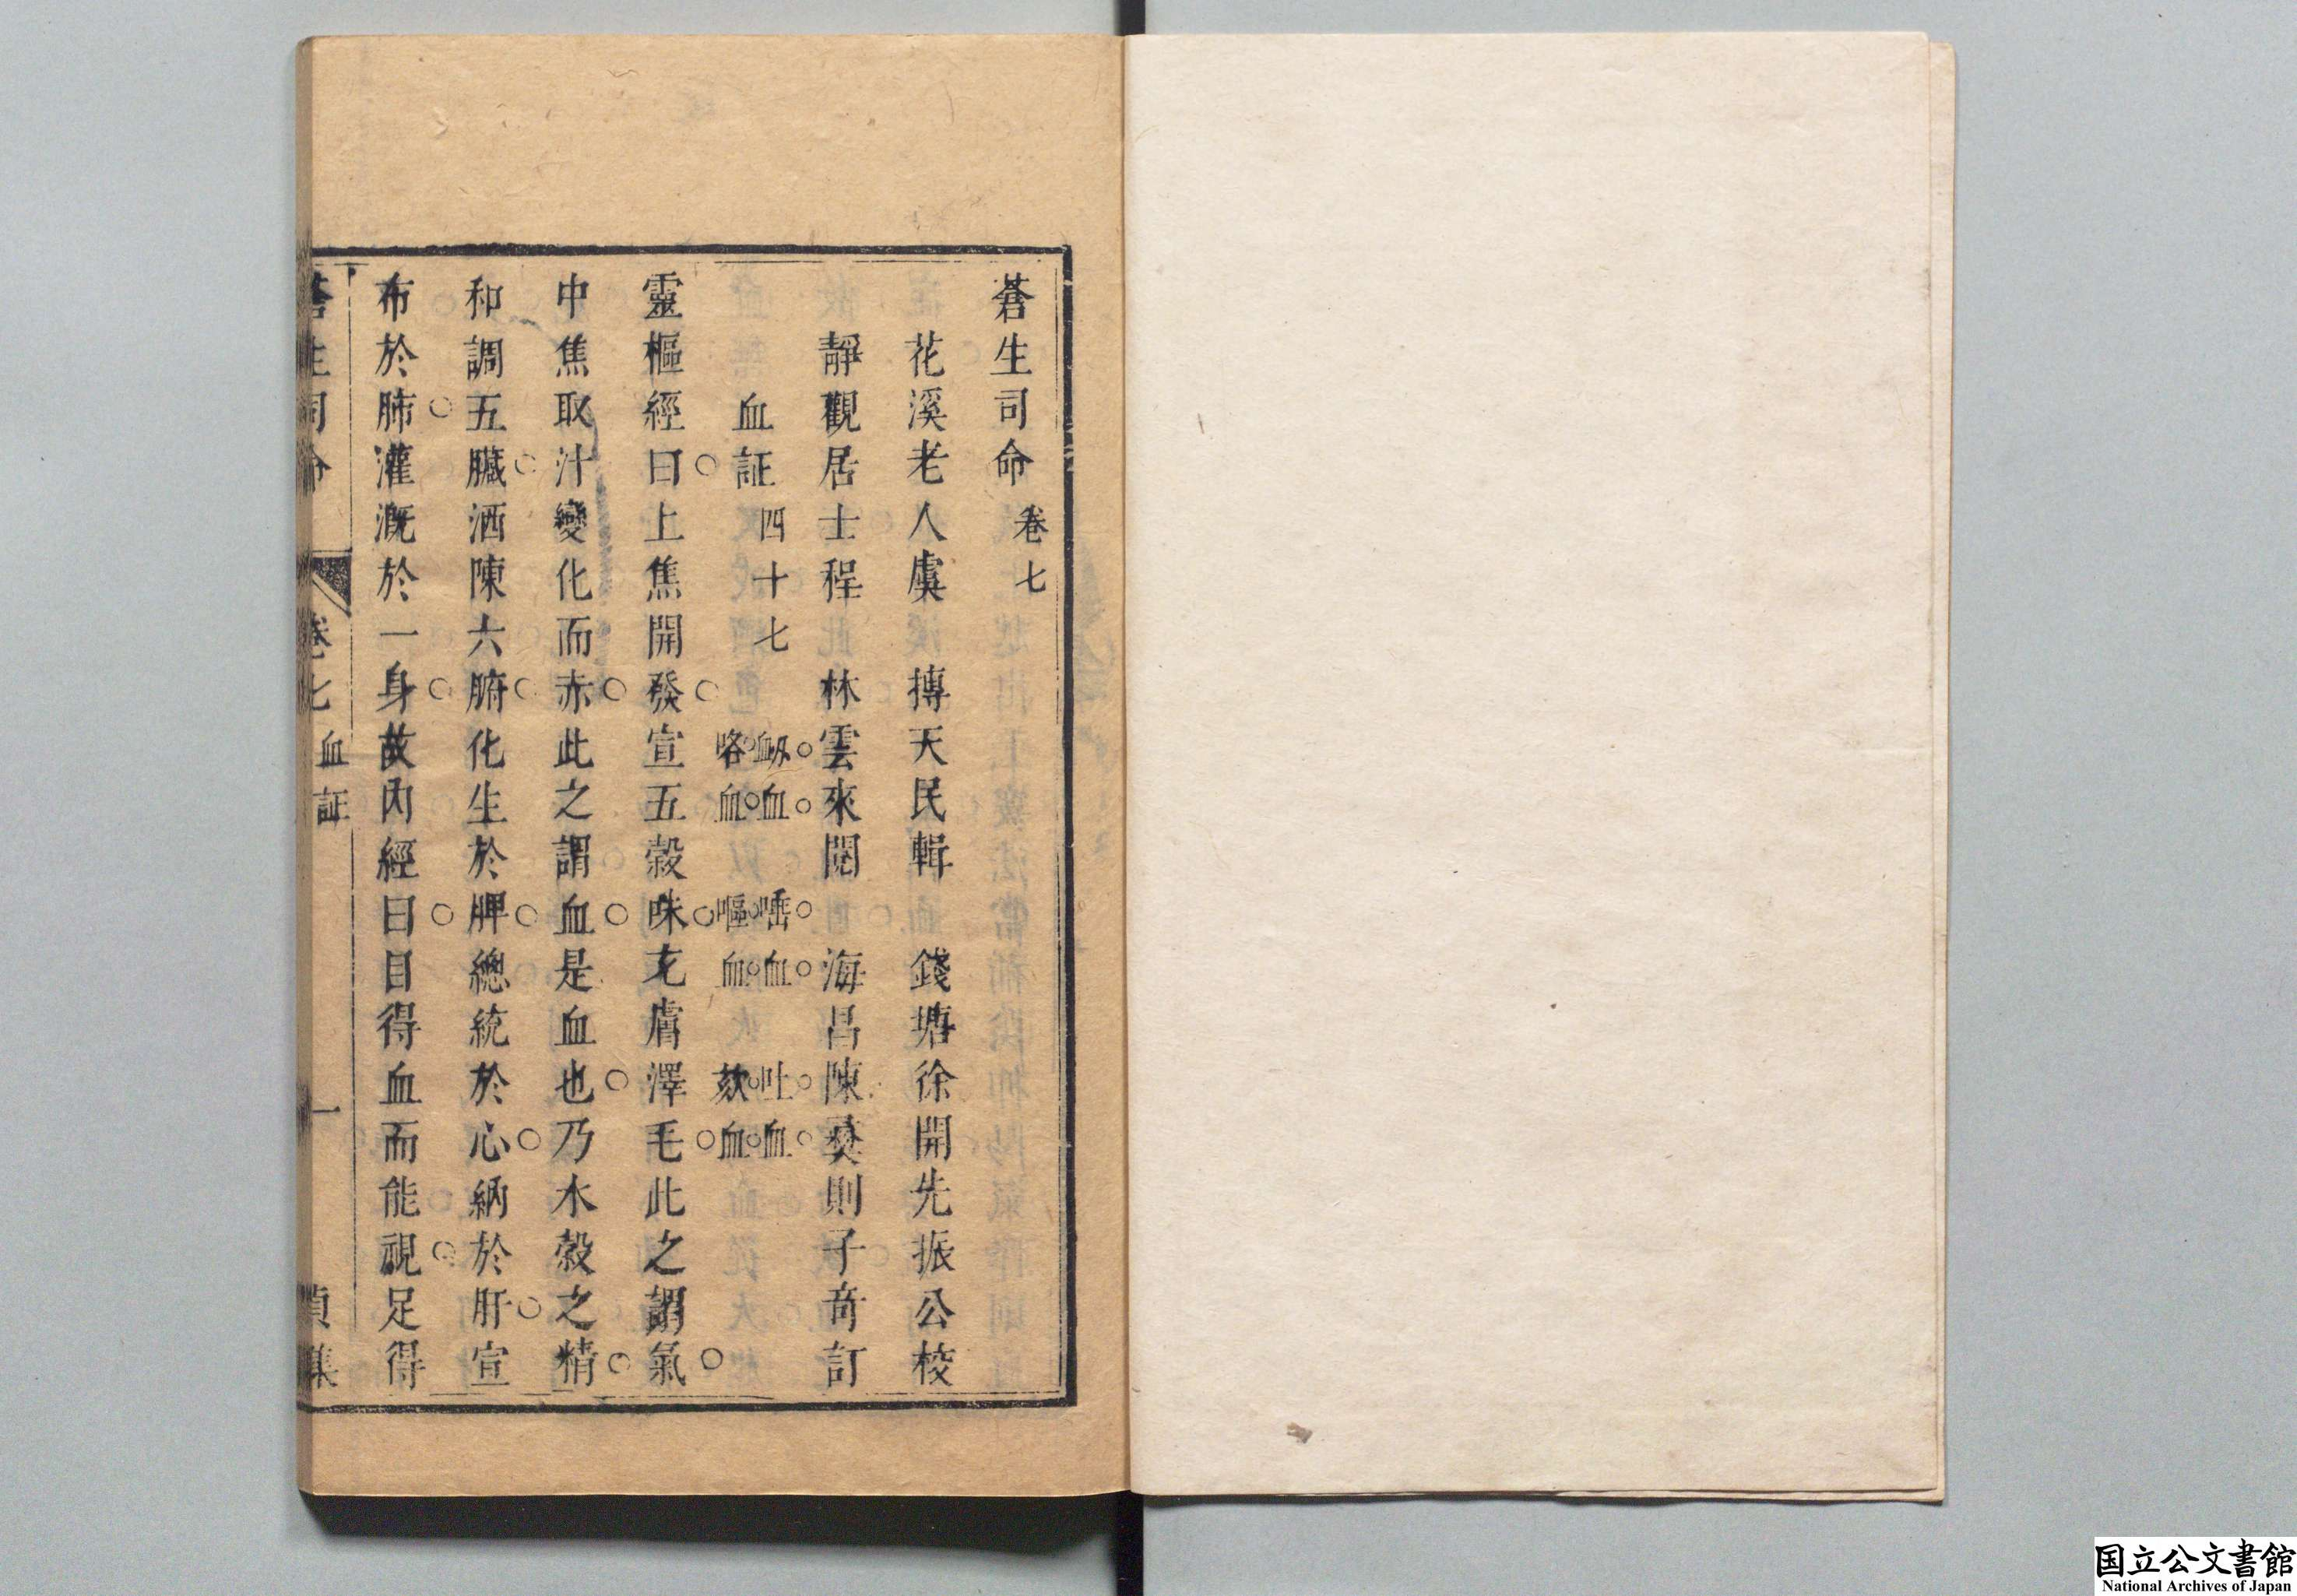 蒼生司命 卷七
花溪老人虞 摶天民輯 錢塘徐開先振公校
靜觀居士程 林雲來閱 海昌陳㷟則子奇訂
血証 四十七 衂血 唾血 吐血 咯血 嘔血 欬血
靈樞經曰○上焦開發○宣五榖味○充膚澤毛○此之謂氣○
中焦取汁變化而赤○此之謂血○是血也○乃水榖之精○
和調五臟○洒陳六腑○化生於脾○總統於心○納於肝○宣
布於肺○灌溉於一身○故內經曰○目得血而能視○足得
蒼生司命 卷七 血証 一 貞集
国立公文書館
National Archives of Japan